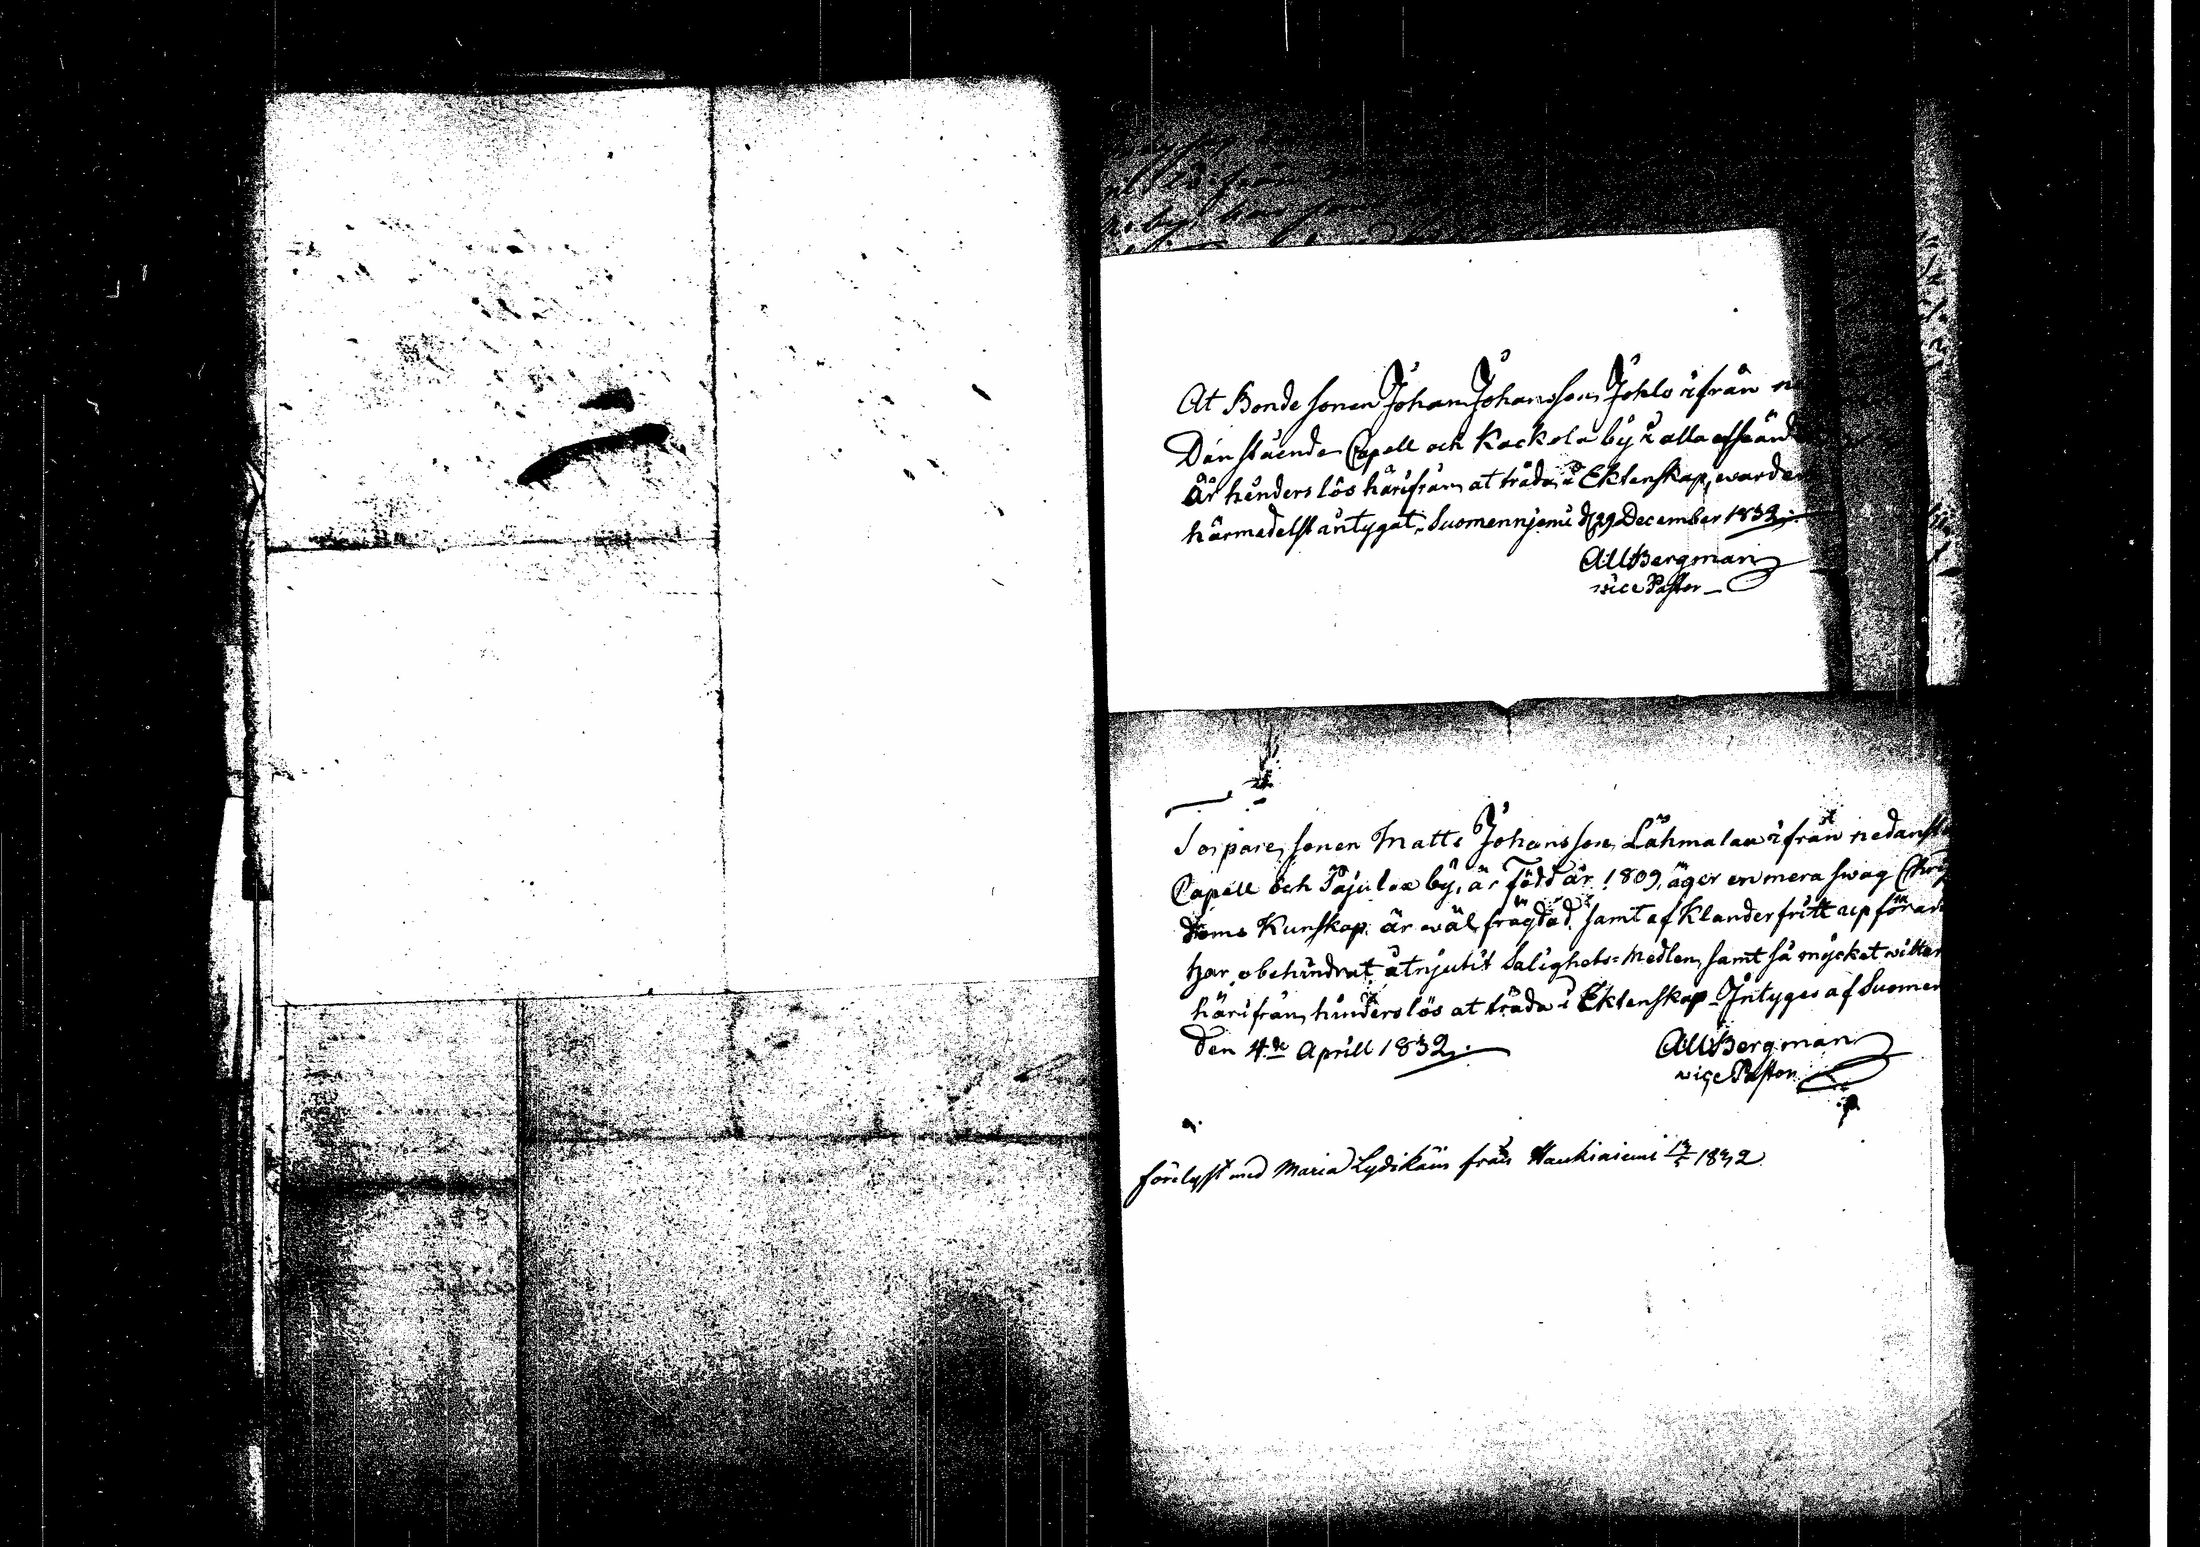 At Bonde sonen Johan Johansson Johlo ifrån
Dan stående Capell och Kackola by i alla afseänd
är hinders lös härifrån at träda i Ektenskap, warder
härmedelst intygat. Suomennjemi d 29 December 1832.
AWBergman
vice Pastor
Torpare sonen Matts Johansson Lähmalan ifrån nedanstå
Capell och Pajulax by, är född år 1809, äger en mera swag Chri
doms Kunskap, är wäl frägdad, samt af Klanderfritt upförand
har obehindrat åtnjutit Salighets=Medlen, samt så mycket witter
härifrån, hinderslös at träda i Ektenskap. Intygas af Suomen
den 4de Aprill 1832.
AWBergman
vice Pastor
förelyst med Maria Lydikäin från Haukianiemi 1832